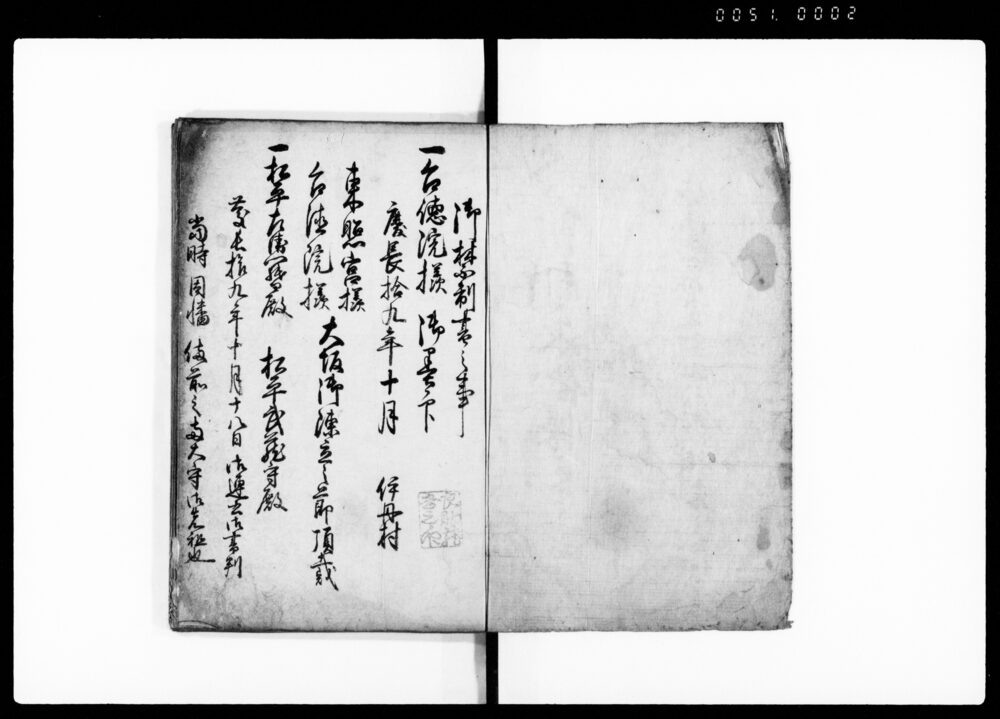 0051. 0002
御禁制書之事
一台徳院様 御墨印
慶長拾九年十月 伊丹村
東照宮様
台徳院様 大坂御陣立之節頂戴
一松平左衛門督殿 松平武蔵守殿
慶長拾九年十月十八日御連名御書判
当時因幡備前之両大守御先祖也